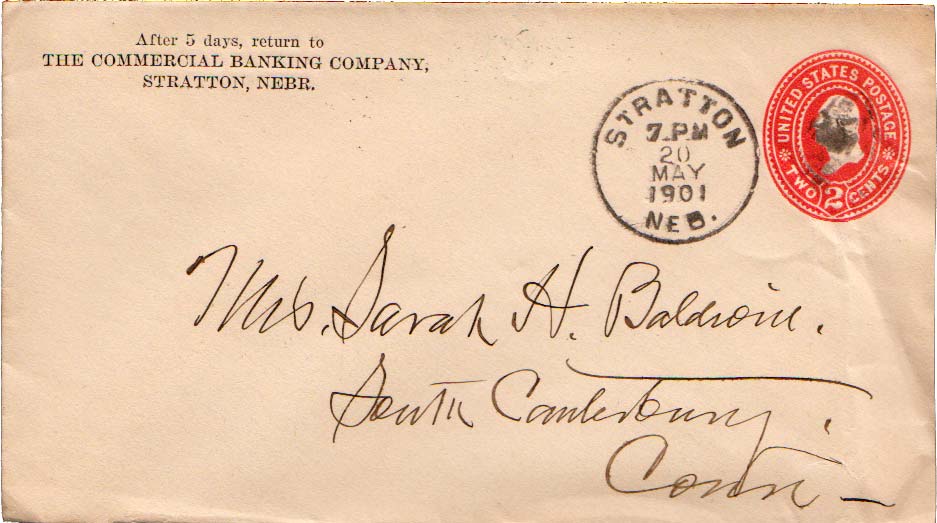 After 5 days, return to
THE COMMERCIAL BANKING COMPANY,
STRATTON, NEBR.
STRATTON
7 PM
20
MAY
1901
NEB.
UNITED STATES POSTAGE
TWO 2 CENTS
Mrs. Sarah H. Baldwin.
South Canterbury,
Conn